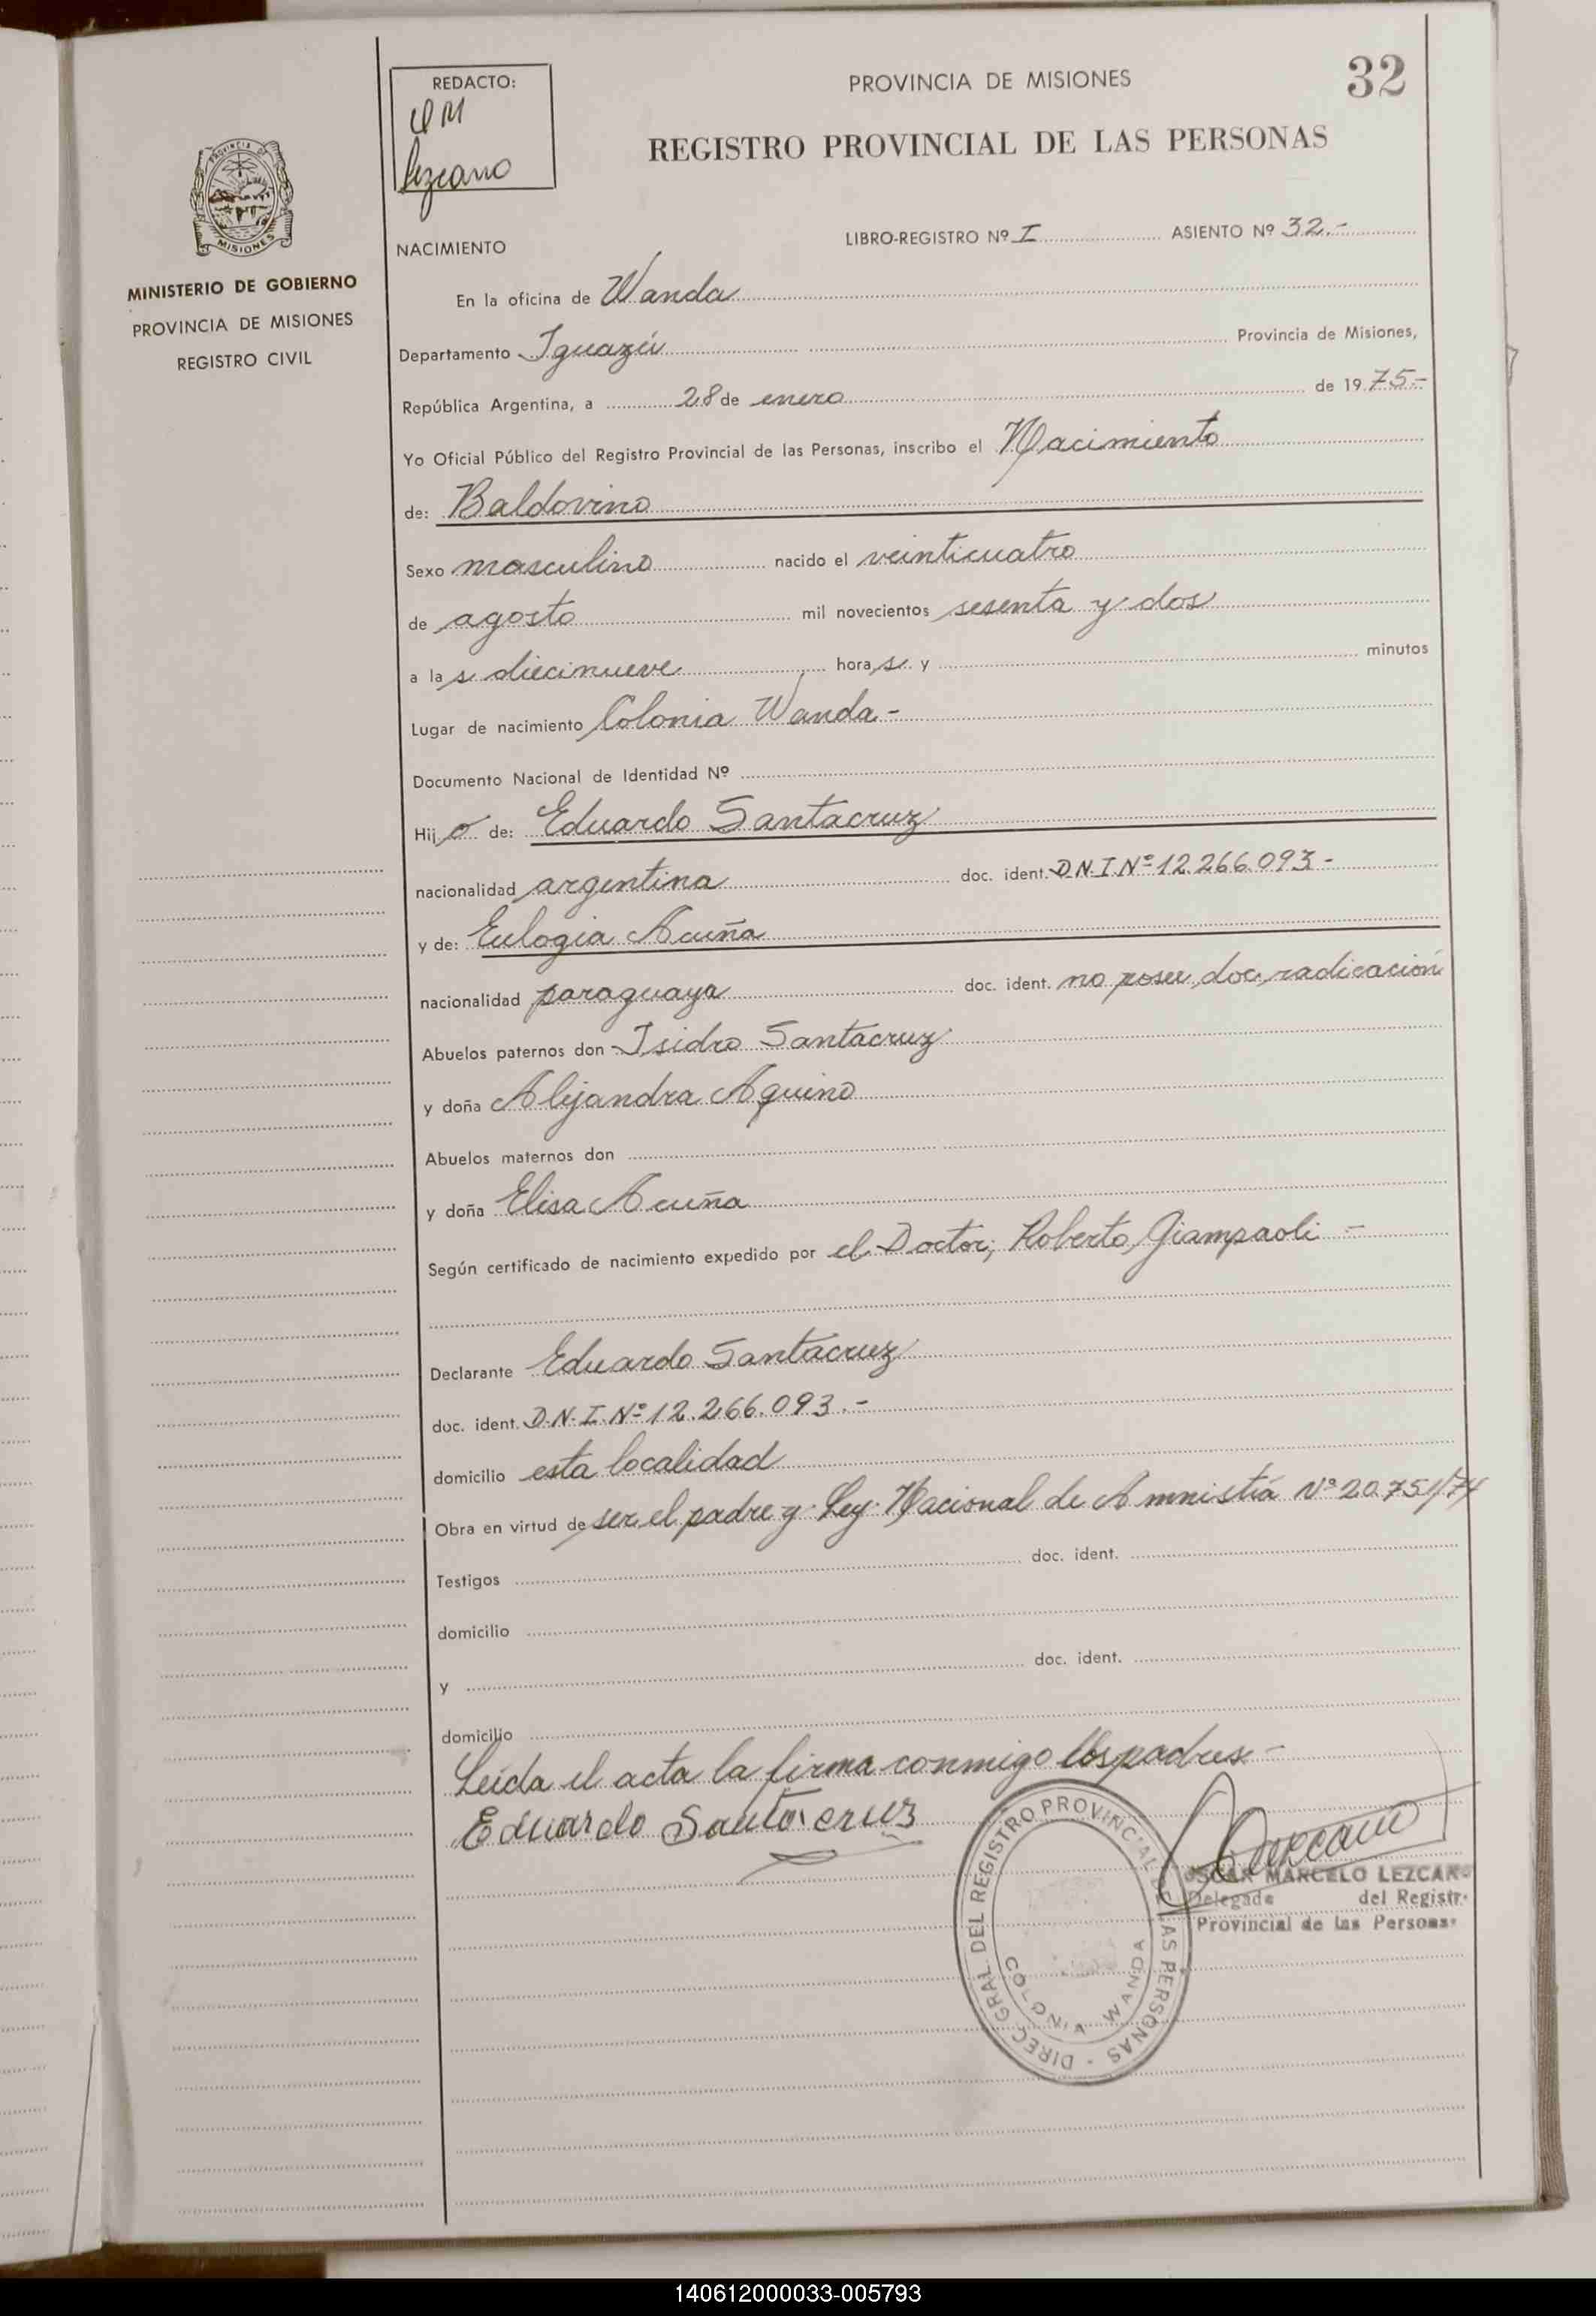 32
REDACTO:
OM
Lezcano
PROVINCIA DE MISIONES
REGISTRO PROVINCIAL DE LAS PERSONAS
PROVINCIA DE
MISIONES
MINISTERIO DE GOBIERNO
PROVINCIA DE MISIONES
REGISTRO CIVIL
NACIMIENTO
LIBRO-REGISTRO Nº I ASIENTO Nº 32.-
En la oficina de Wanda
Departamento Iguazú Provincia de Misiones,
República Argentina, a 28 de enero de 1975.-
Yo Oficial Público del Registro Provincial de las Personas, inscribo el Nacimiento
de: Baldovino
Sexo masculino nacido el veinticuatro
de agosto mil novecientos sesenta y dos
a las diecinueve horas y minutos
Lugar de nacimiento Colonia Wanda-
Documento Nacional de Identidad Nº
Hijo de: Eduardo Santacruz
nacionalidad argentina doc. ident. D.N.I.Nº 12.266.093-
y de: Eulogia Acuña
nacionalidad paraguaya doc. ident. no posee doc. radicación
Abuelos paternos don Isidro Santacruz
y doña Alejandra Aquino
Abuelos maternos don
y doña Elisa Acuña
Según certificado de nacimiento expedido por el Doctor; Roberto Giampaoli-
Declarante Eduardo Santacruz
doc. ident. D.N.I.Nº 12.266.093.-
domicilio esta localidad
Obra en virtud de ser el padre y Ley Nacional de Amnistía Nº 20.751/74
Testigos doc. ident.
domicilio
y doc. ident.
domicilio
Leída el acta la firma conmigo los padres-
Eduardo Santacruz
DIREC. GRAL. DEL REGISTRO PROVINCIAL DE LAS PERSONAS -
COLONIA WANDA
Lezcano
OSCAR MARCELO LEZCANO
Delegado del Registro
Provincial de las Personas
140612000033-005793